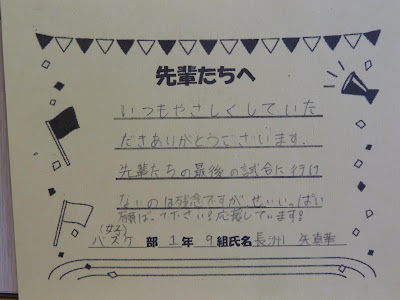 先輩たちへ
いつもやさしくしていた
だきありがとうございます。
先輩たちの最後の試合に行け
ないのは残念ですが、せいいっぱい
頑ばってください!応援しています!
(女子)
バスケ 部 1 年 9 組氏名 長洲